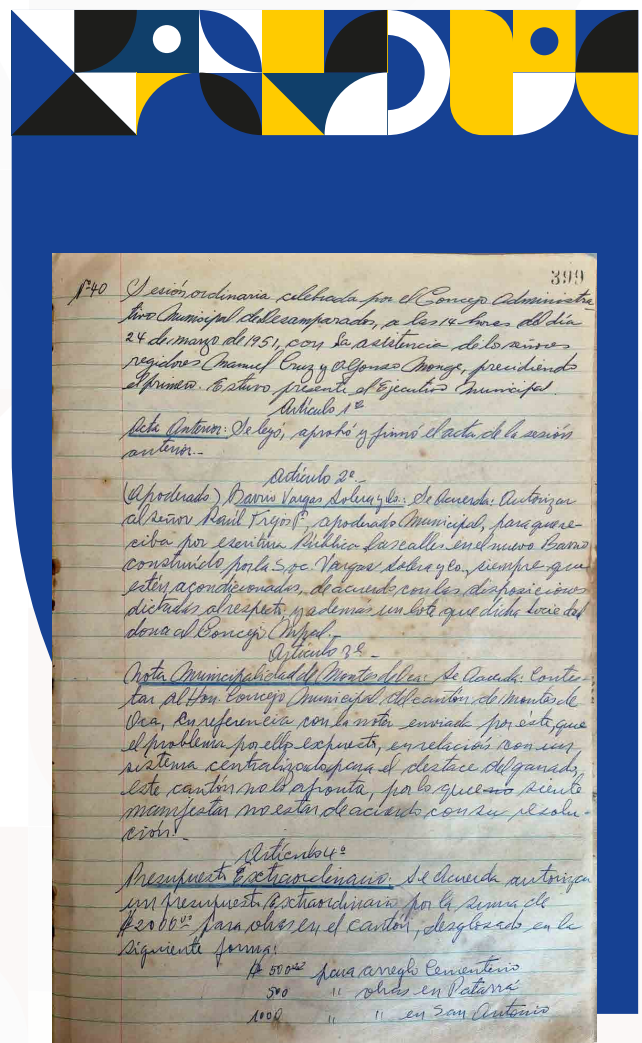 399
Nº 40 Sesión ordinaria celebrada por el Concejo Administra-
tivo Municipal de Desamparados, a las 14 horas del día
24 de marzo de 1951, con la asistencia de los señores
regidores Manuel Cruz y Alfonso Monge, presidiendo
el primero. Estuvo presente el Ejecutivo Municipal.
Artículo 1º
Acta Anterior: Se leyó, aprobó y firmó el acta de la sesión
anterior.-
Artículo 2º-
(Apoderado) Barrio Vargas Solera y Co.: Se Acuerda: Autorizar
al señor Raúl Trejos, apoderado Municipal, para que re-
ciba por escritura Pública las calles en el nuevo Barrio
construido por la Soc. Vargas Solera y Co, siempre que
estén acondicionadas, de acuerdo con las disposiciones
dictadas al respecto y además un lote que dicha Sociedad
dona al Concejo Mpal.-
Artículo 3º
Nota Municipalidad de Montes de Oca: Se Acuerda: Contes-
tar al Hon. Concejo Municipal del cantón de Montes de
Oca, en referencia con la nota enviada por este, que
el problema por ello expuesto, en relación con un
sistema centralizado para el destace del ganado,
este cantón no lo afronta, por lo que siente
manifestar no estar de acuerdo con su resolu-
ción.-
Artículo 4º
Presupuesto Extraordinario: Se Acuerda autorizar
un presupuesto extraordinario por la suma de
₡2000.00 para obras en el cantón, desglosado en la
siguiente forma:
₡ 500.00 para arreglo Cementerio
500 " obras en Patarrá
1000 " " en San Antonio